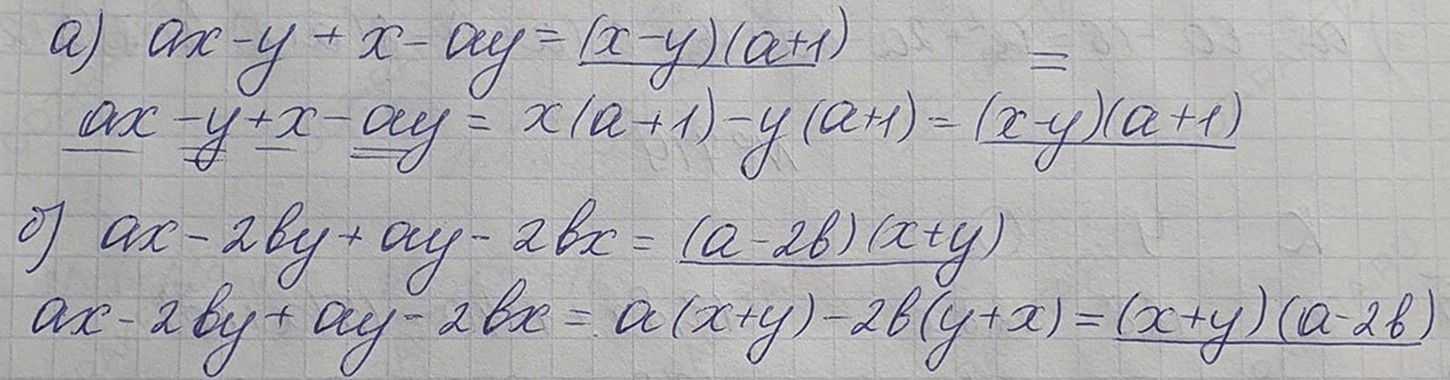 а) ax - y + x - ay = (x-y)(a+1) =
ax - y + x - ay = x(a+1) - y(a+1) = (x-y)(a+1)
б) ax - 2by + ay - 2bx = (a-2b)(x+y)
ax - 2by + ay - 2bx = a(x+y) - 2b(y+x) = (x+y)(a-2b)